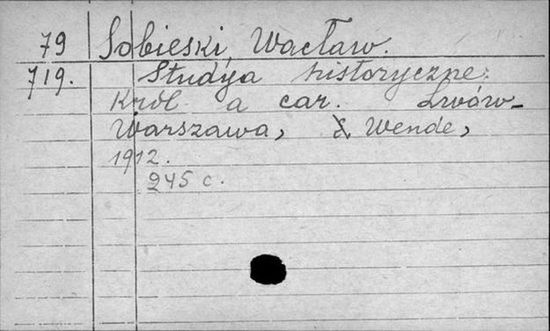 79 Sobieski, Wacław.
719. Studya historyczne.
Król a car. Lwów-
Warszawa, Wende,
1912.
245 c.